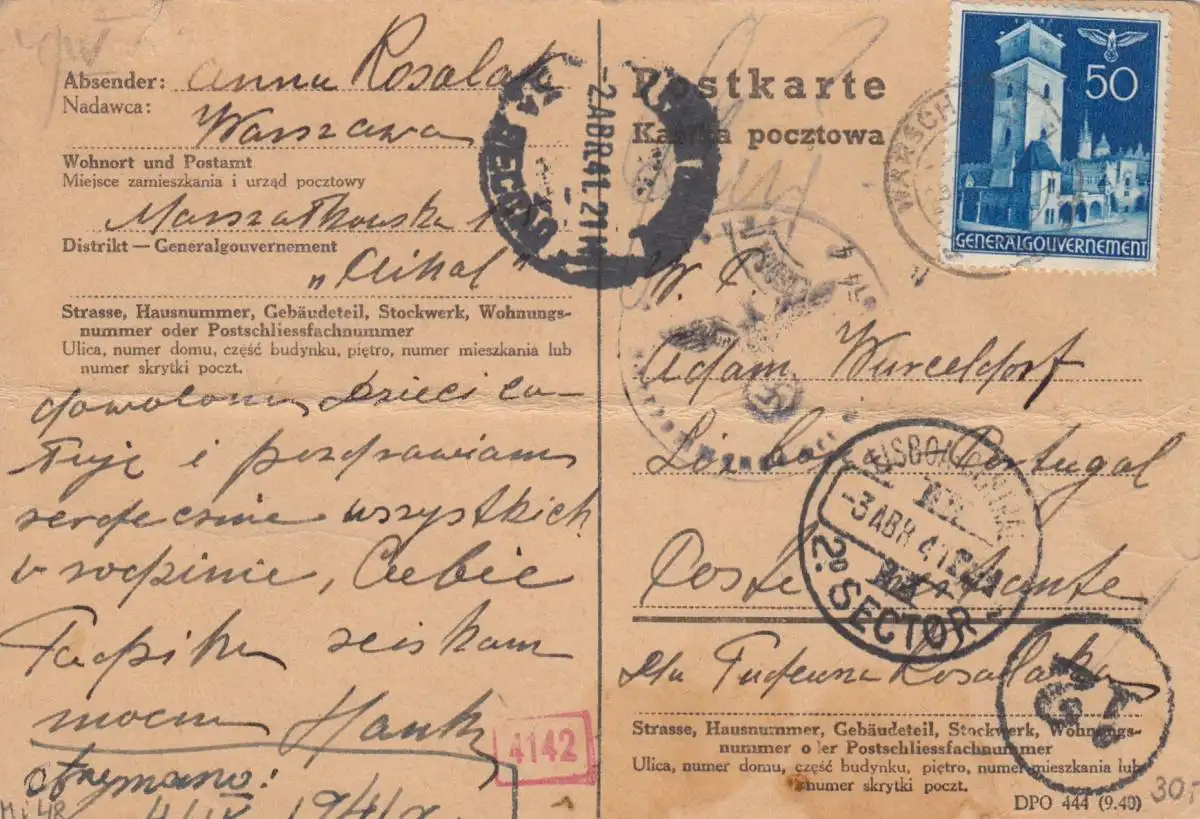 Absender: Anna Rosalak
Nadawca:
Warszawa
Wohnort und Postamt
Miejsce zamieszkania i urząd pocztowy
Marszałkowska
Distrikt — Generalgouvernement
Strasse, Hausnummer, Gebäudeteil, Stockwerk, Wohnungs-
nummer oder Postschliessfachnummer
Ulica, numer domu, część budynku, piętro, numer mieszkania lub
numer skrytki poczt.
dzieci ca-
łuję i pozdrawiam
serdecznie wszystkich
w rodzinie, Ciebie
ściskam
mocno
4142
Otrzymano:
4/IV 1941
Postkarte
Kartka pocztowa
50
GENERALGOUVERNEMENT
WARSCH
-2.ABR.41.21
W. P.
Adam Wurceldorf
Portugal
Poste
dla Tadeusza Rosalaka
-3 ABR 41
2º SECTOR
Strasse, Hausnummer, Gebäudeteil, Stockwerk, Wohnungs-
nummer oder Postschliessfachnummer
Ulica, numer domu, część budynku, piętro, numer mieszkania lub
numer skrytki poczt.
DPO 444 (9.40)
30,-